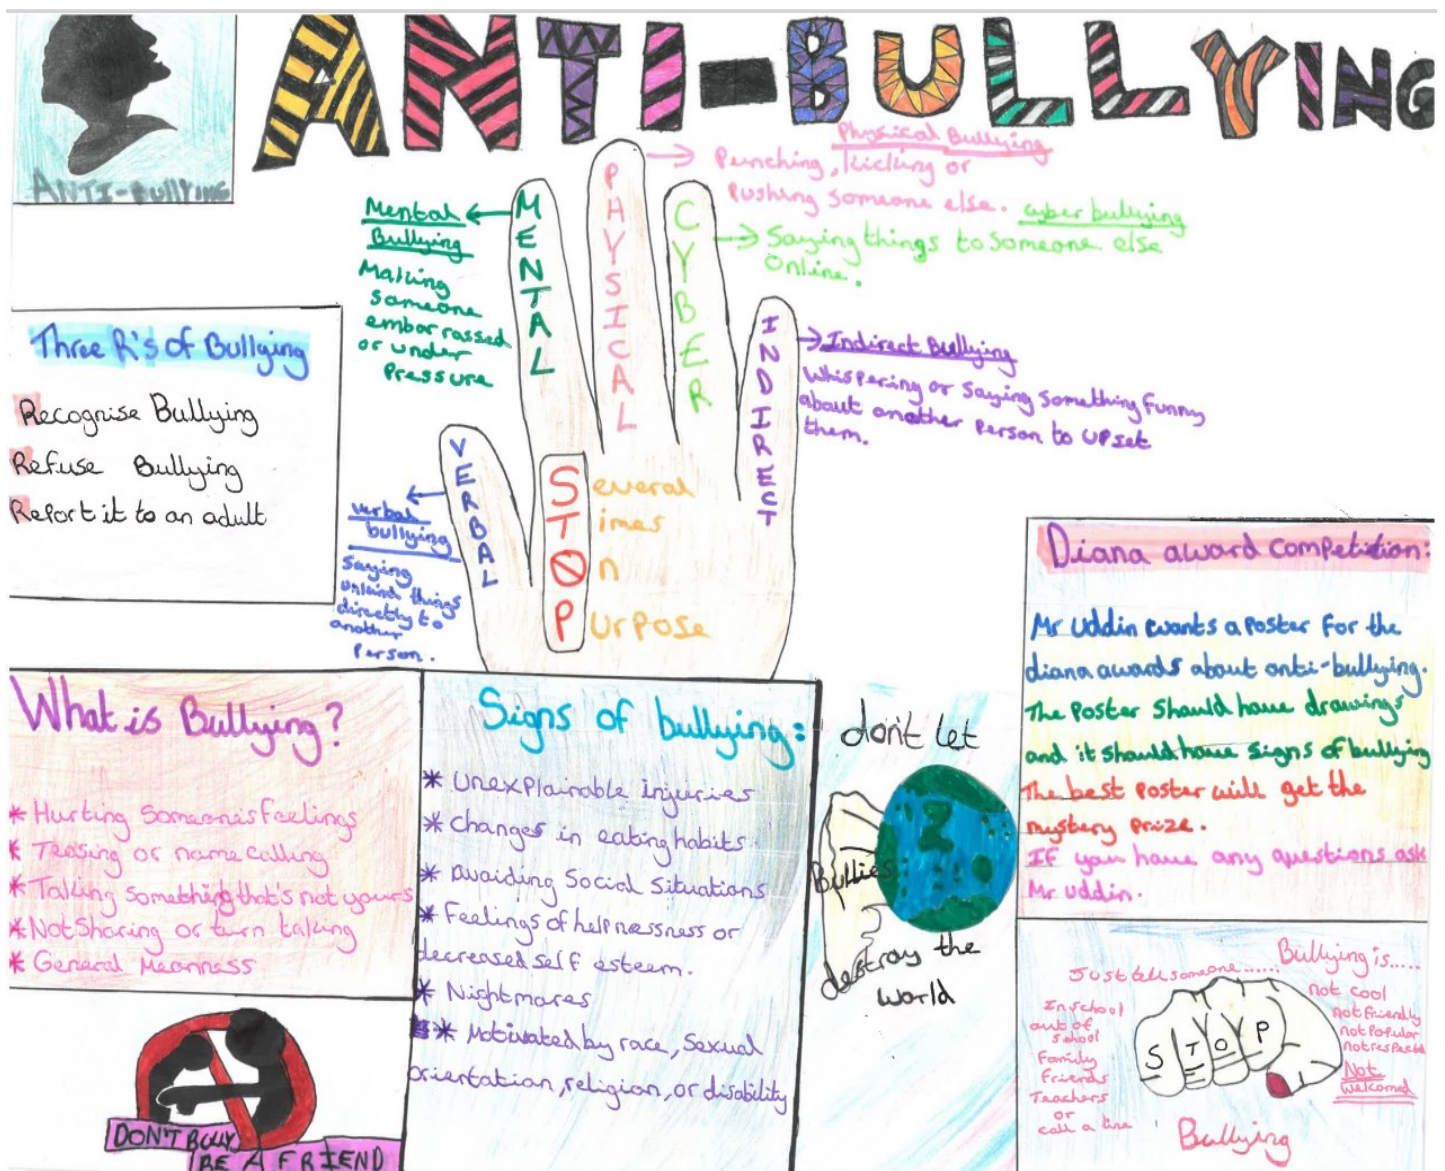 ANTI-BULLYING
ANTI-BULLYING
Physical Bullying
Punching, kicking or
Pushing someone else.
cyber bullying
Saying things to someone else
online.
Mental
Bullying
Making
someone
embarrassed
or under
Pressure
MENTAL
PHYSICAL
CYBER
INDIRECT
VERBAL
Indirect Bullying
Whispering or saying something funny
about another person to upset
them.
Three R's of Bullying
Recognise Bullying
Refuse Bullying
Report it to an adult
verbal
bullying
Saying
unkind things
directly to
another
Person.
Several
Times
On
Purpose
Diana award competition:
Mr Uddin wants a poster for the
diana awards about anti-bullying.
The poster should have drawings
and it should have signs of bullying
The best poster will get the
mystery prize.
If you have any questions ask
Mr uddin.
What is Bullying?
* Hurting someones feelings
* Teasing or name calling
* Taking something that's not yours
* Not Sharing or turn taking
* General Meanness
Signs of bullying:
* Unexplainable injuries
* Changes in eating habits
* avaiding Social Situations
* Feelings of helpnessness or
decreased self esteem.
* Nightmares
* Motivated by race, Sexual
orientation, religion, or disability
don't let
Bullies
destroy the
world
DON'T BULLY
BE A FRIEND
Just tell someone......
In school
out of
school
Family
Friends
Teachers
or
call a line
Bullying is.....
not cool
not friendly
not popular
Not
welcomed
STOP
Bullying